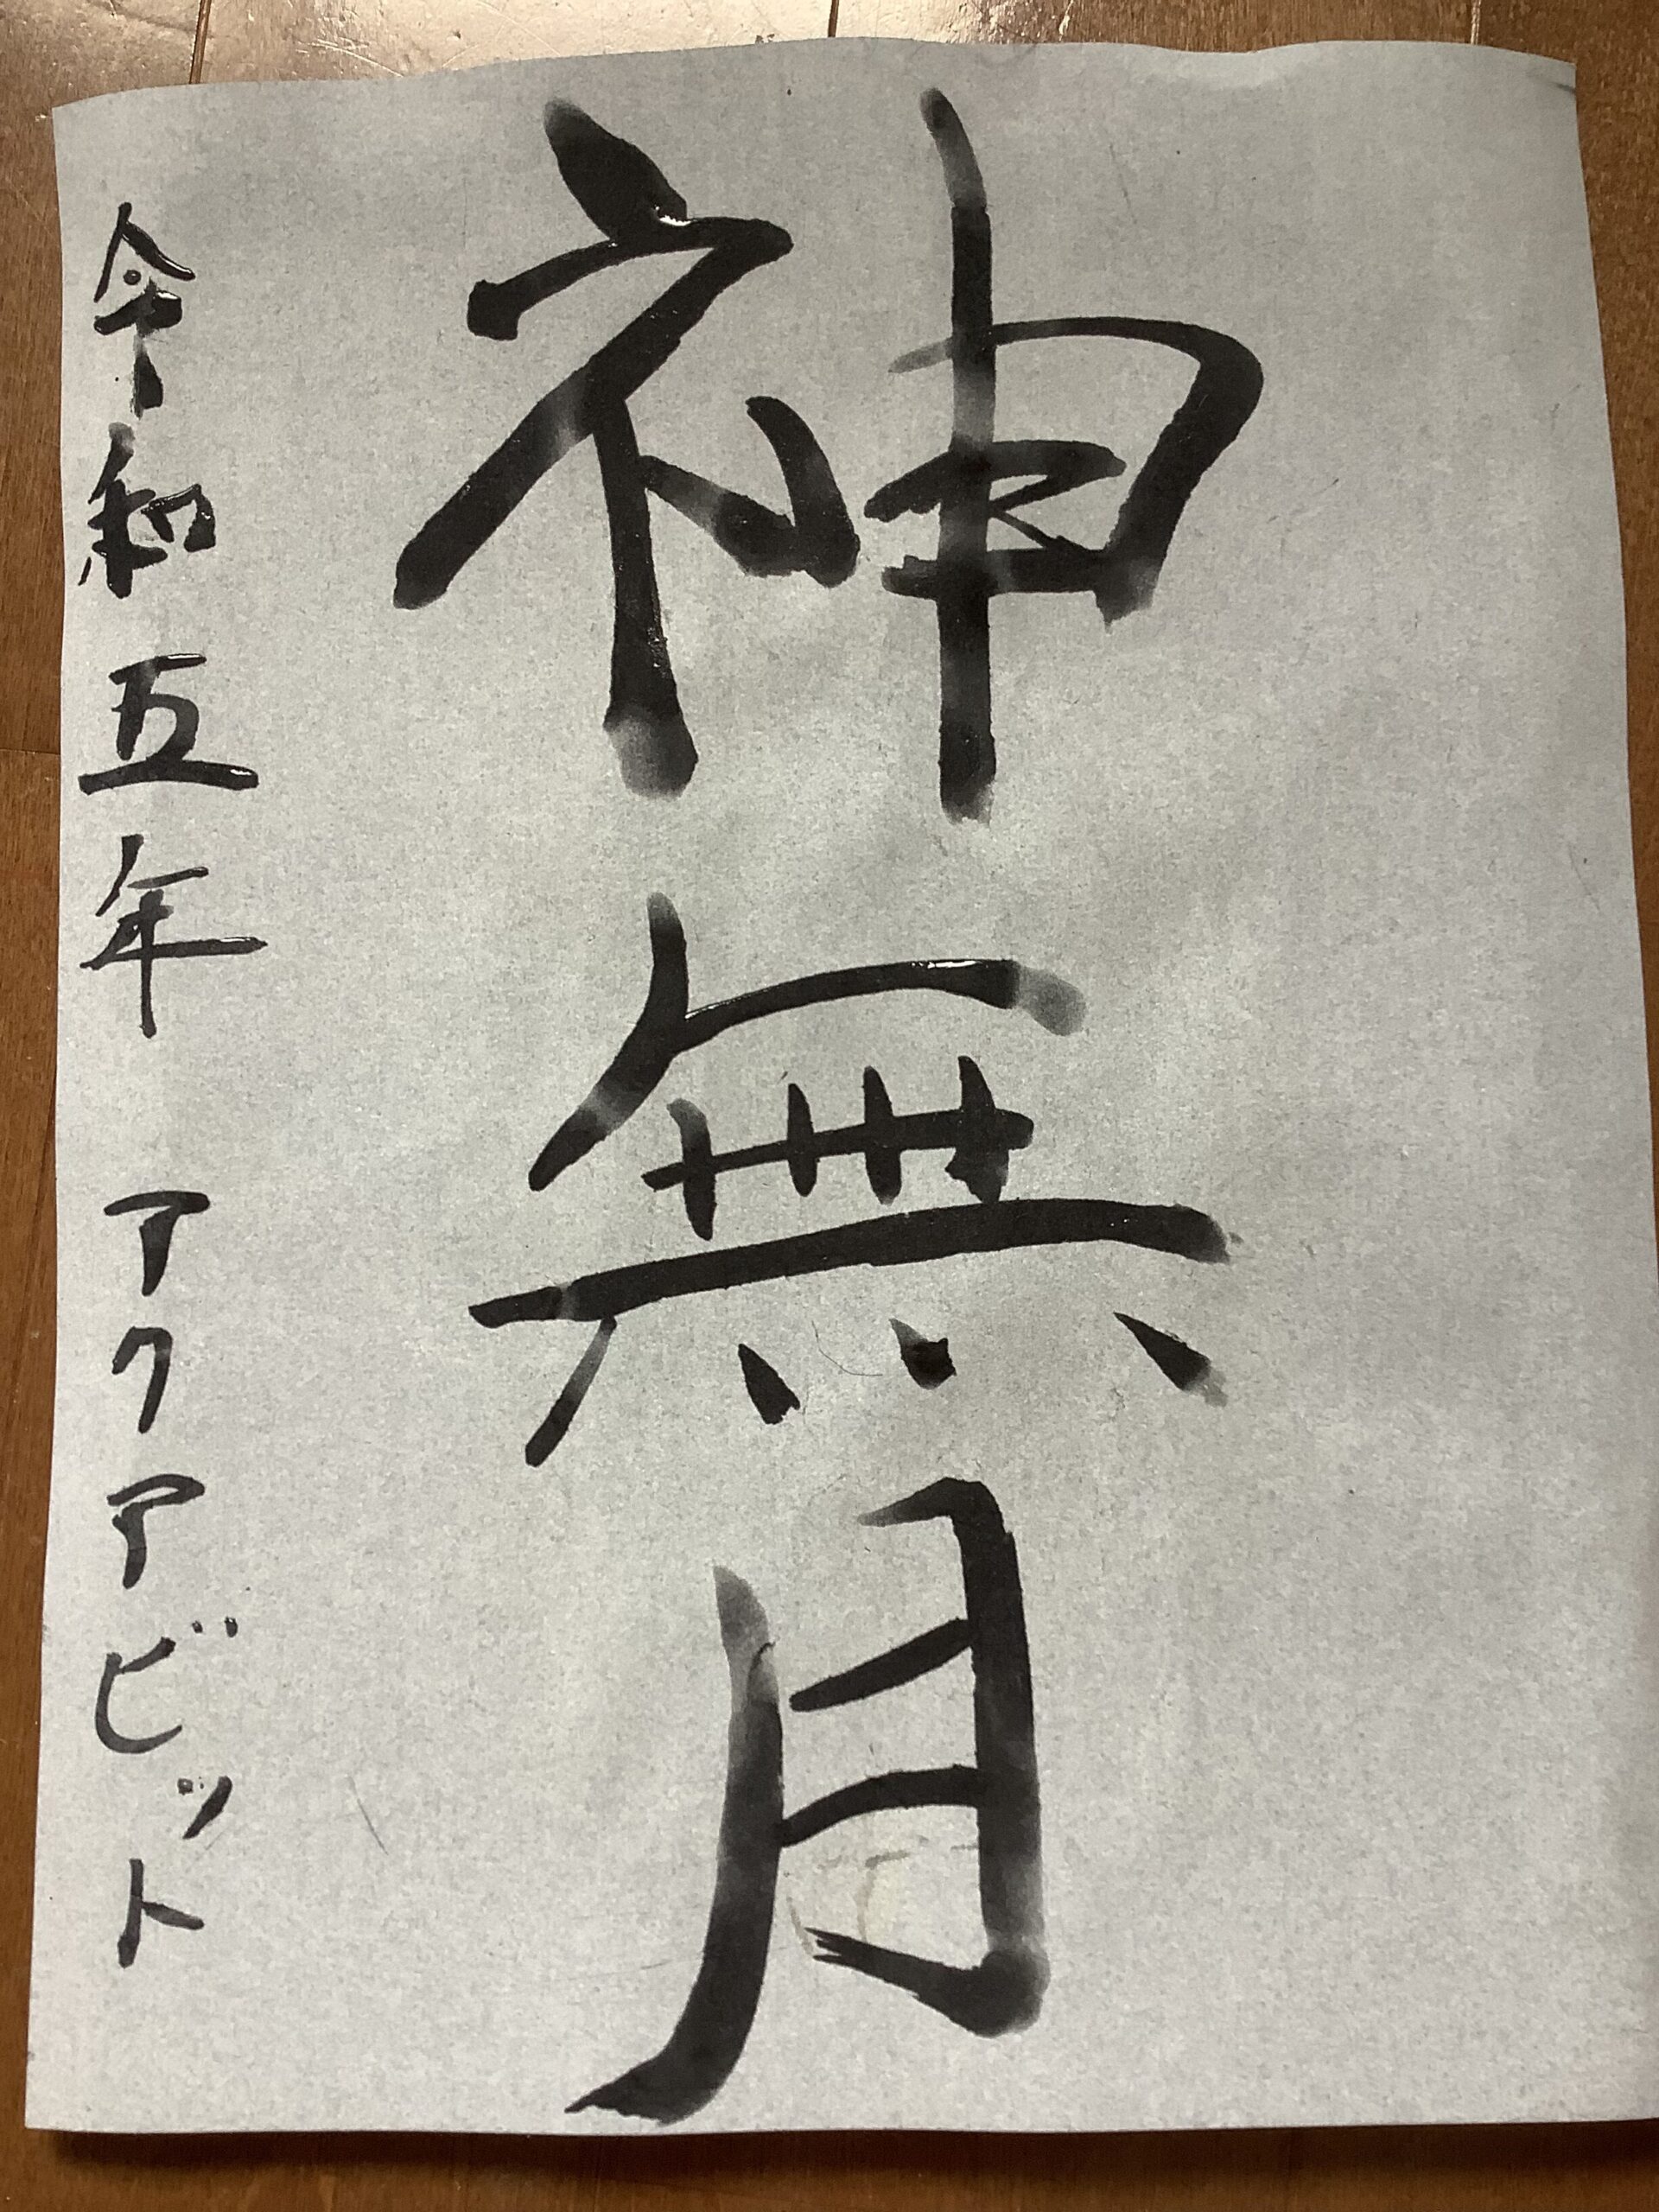 神無月
令和五年 アクアビット